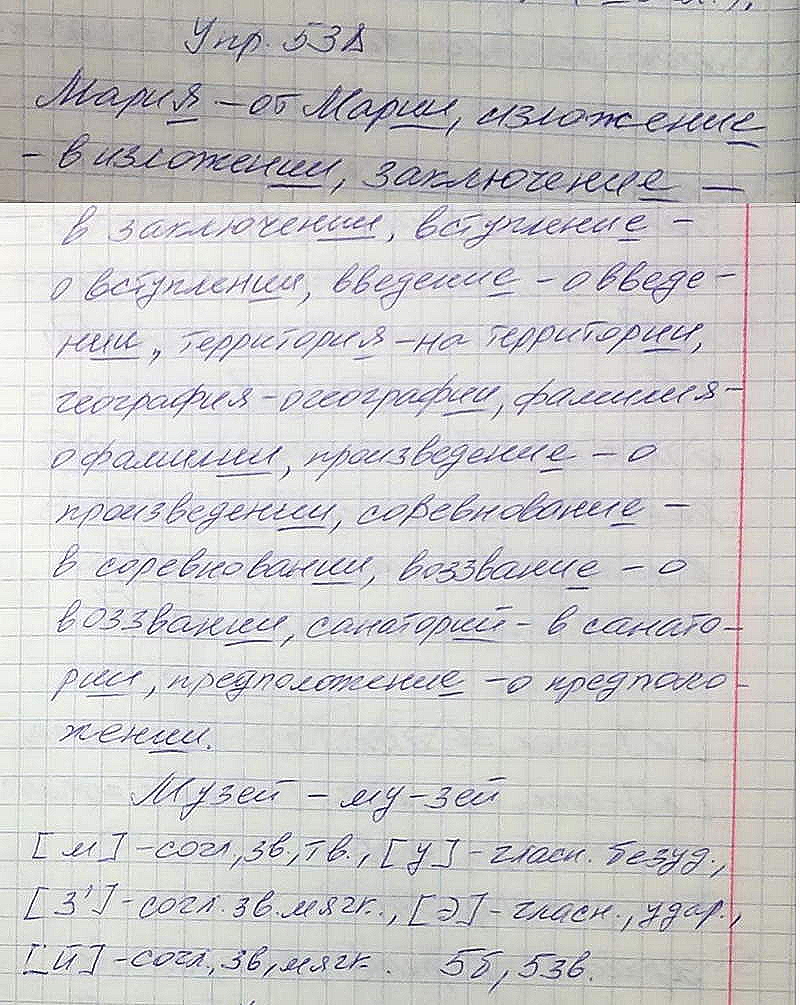 Упр. 538
Мария – от Марии, изложение
– в изложении, заключение –
в заключении, вступление –
о вступлении, введение – о введе-
нии, территория – на территории,
география – о географии, фамилия –
о фамилии, произведение – о
произведении, соревнование –
в соревновании, воззвание – о
воззвании, санаторий – в санато-
рии, предположение – о предполо-
жении.
Музей – му-зей
[м] – согл, зв., тв., [у] – гласн. безуд.,
[з'] – согл. зв. мягк., [э] – гласн., удар.,
[й] – согл, зв, мягк. 5б, 5зв.